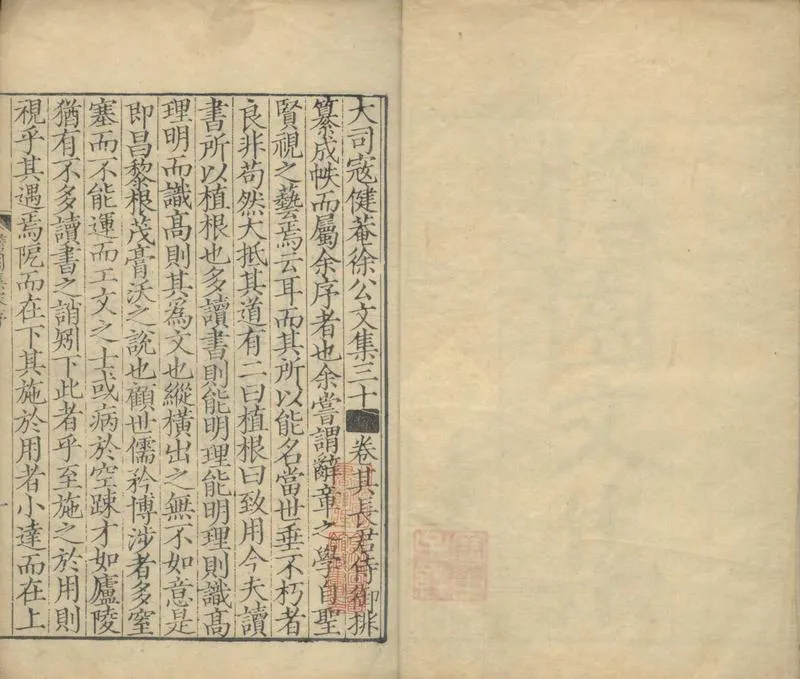 大司寇健菴徐公文集三十 卷其長君侍御排
纂成帙而屬余序者也余嘗謂辭章之學自聖
賢視之藝焉云耳而其所以能名當世垂不朽者
良非苟然大抵其道有二曰植根曰致用今夫讀
書所以植根也多讀書則能明理能明理則識高
理明而識高則其為文也縱橫出之無不如意是
即昌黎根茂膏沃之說也顧世儒矜博涉者多窒
塞而不能運而工文之士或病於空踈才如廬陵
猶有不多讀書之誚矧下此者乎至施之於用則
視乎其遇焉阨而在下其施於用者小達而在上